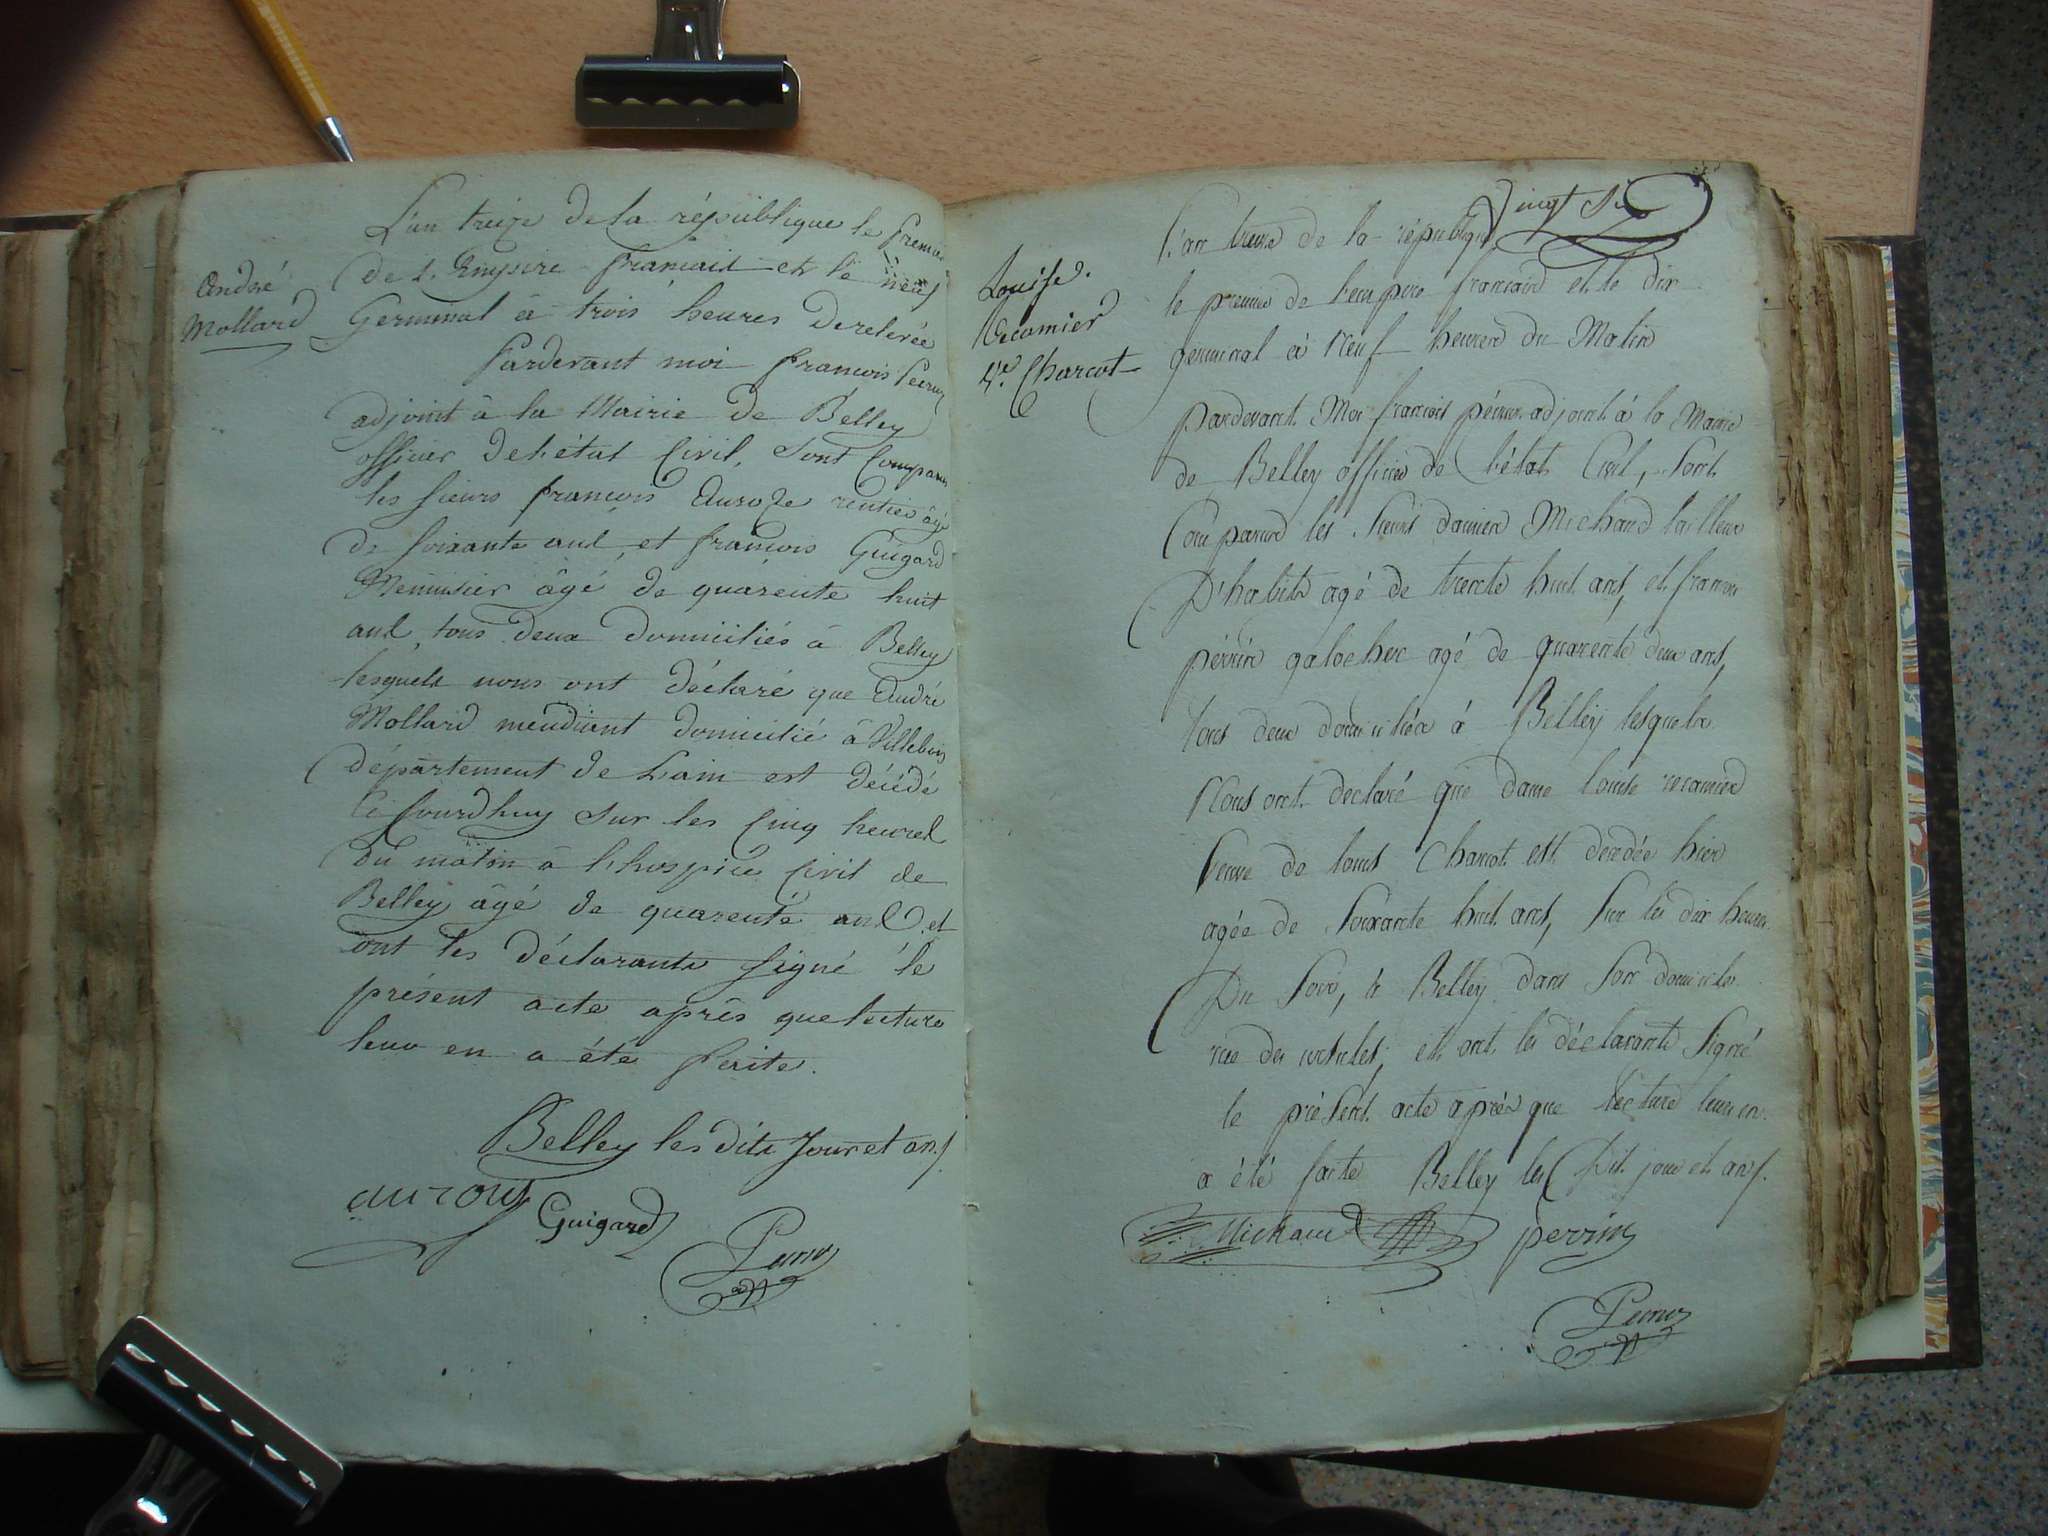 L'an treize de la république le premier
de l'Empire francais et le neuf
André
Mollard
Germinal à trois heures de relevée
Pardevant moi francois Peÿsson
adjoint à la Mairie de Belley
officier de l'état Civil, sont Comparus
les sieurs francois Auroze rentier âgé
de soixante ans, et francois Guigard
Menuisier âgé de quarente huit
ans, tous deux domiciliés à Belley
lesquels nous ont déclaré que André
Mollard mendiant domicilié à Villebois
département de L'ain est décédé
ce jourdhuy sur les cinq heures
du matin à l'hospice Civil de
Belley âgé de quarente ans et
ont les déclarants signé le
présent acte après que lecture
leur en a été faite.
Belley les dits Jour et an.
Guigard
Vingt Six
L'an treize de la république
Louise
Recamier
Ve. Charcot
le premier de l'empire francais et le dix
germinal à Neuf heures du Matin
pardevant Moi francois adjoint à la Mairie
de Belley officier de l'état Civil, sont
Comparus les Sieurs damien Michaud tailleur
D'habits agé de trente huit ans, et francois
perrin galocher agé de quarente deux ans,
tous deux domiciliés à Belley lesquels
Nous ont déclaré que dame louise recamier
veuve de louis Charcot est décédée hier
agée de Soixante huit ans, sur les dix heures
Du Soir, à Belley dans son domicile
rue des et ont les déclarants Signé
le présent acte après que lecture leur en
a été faite Belley les Dit jour et an.
Michaud perrin